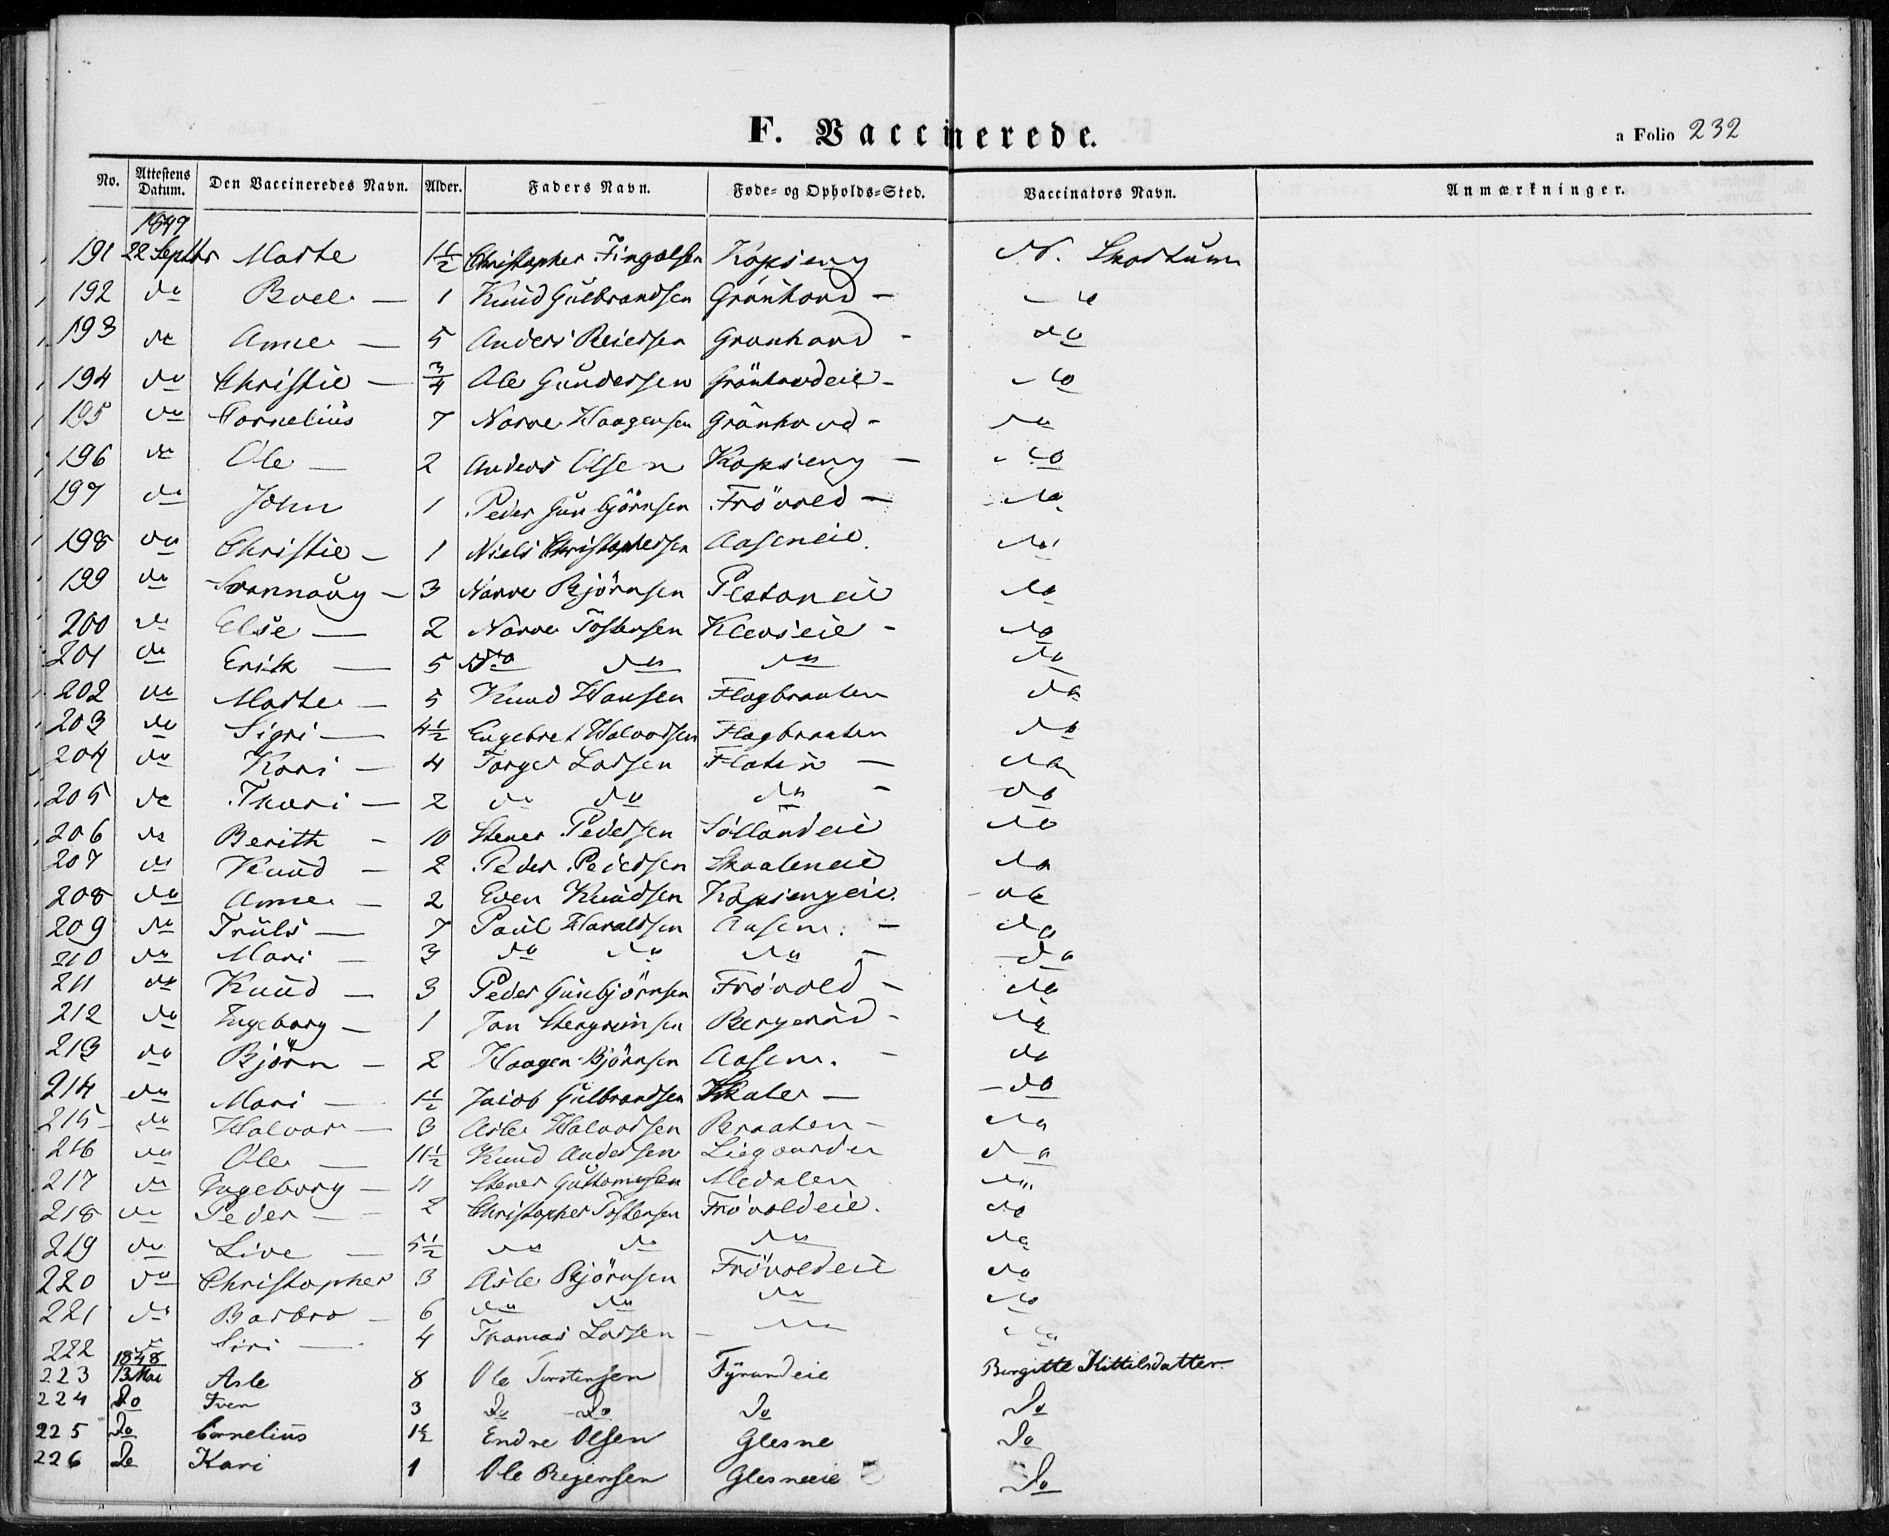 F. Vaccinerede.
a Folio 232
No. Attestens Datum. Den Vaccineredes Navn. Alder. Faders Navn. Føde- og Opholds-Sted. Vaccinators Navn. Anmærkninger.
1849
191 22 Septbr Marte 1½ Christopher Fingalsen Kopseng N. Skartum
192 do Boel — 1 Knud Gulbrandsen Grønhovd — do
193 do Anne — 5 Anders Reiersen Grønhovd - do
194 do Christie — ¾ Ole Gundersen Grönhovdeie - do
195 do Cornelius 7 Narve Haagensen Grönhovd - do
196 do Ole — 2 Anders Olsen Kopseng — do
197 do John 1 Peder Gunbjörnsen Frövold — do
198 do Christie — 1 Niels Christophersen Aaseneie do
199 do Svannaug — 3 Narve Björnsen do
200 do Else — 2 Narve Tostensen Klevseie - do
201 do Erik — 5 do do do do
202 do Marte — 5 Knud Hansen Flagbraaten do
203 do Sigri — 4½ Engebret Halvorsen Flagbraaten do
204 do Kari — 4 Torger Larsen Flatin — do
205 do Thori — 2 do do do - do
206 do Berith - 10 Stener Pedersen do
207 do Knud - 2 Peder Pedersen Skaaleneie do
208 do Anne - 2 Even Knudsen Kopsengeie. do
209 do Truls — 7 Paul Haraldsen Aasen. — do
210 do Mari — 3 do do do — do
211 do Knud — 3 Peder Gunbjörnsen Frövold - do
212 do Ingeborg — 1 Jon Stengrimsen Bergerud - do
213 do Björn — 2 Haagen Björnsen Aasen. - do
214 do Mari — 1½ Jacob Gulbrandsen — do
215 do Halvor — 3 Asle Halvorsen Braaten - do
216 do Ole — 11½ Knud Andersen Liegaarden do
217 do Ingeborg — 11 Stener Guttormsen Medalen do
218 do Peder — 2 Christopher Tostensen Frövoldeie. do
219 do Live — 5½ do do do do
220 do Christopher 3 Asle Björnsen Frövoldeie do
221 do Barbro — 6 do do do do
222 do Siri — 4 Thomas Larsen — do do
1848
223 13 Mai Asle 8 Ole Torstensen Tyrandeie Burgitte Kittilsdatter.
224 Do Iver 3 Do Do Do Do
225 Do Cornelius 1½ Endre Olsen Glesne Do
226 Do Kari 1 Ole Regersen Glesneeie Do